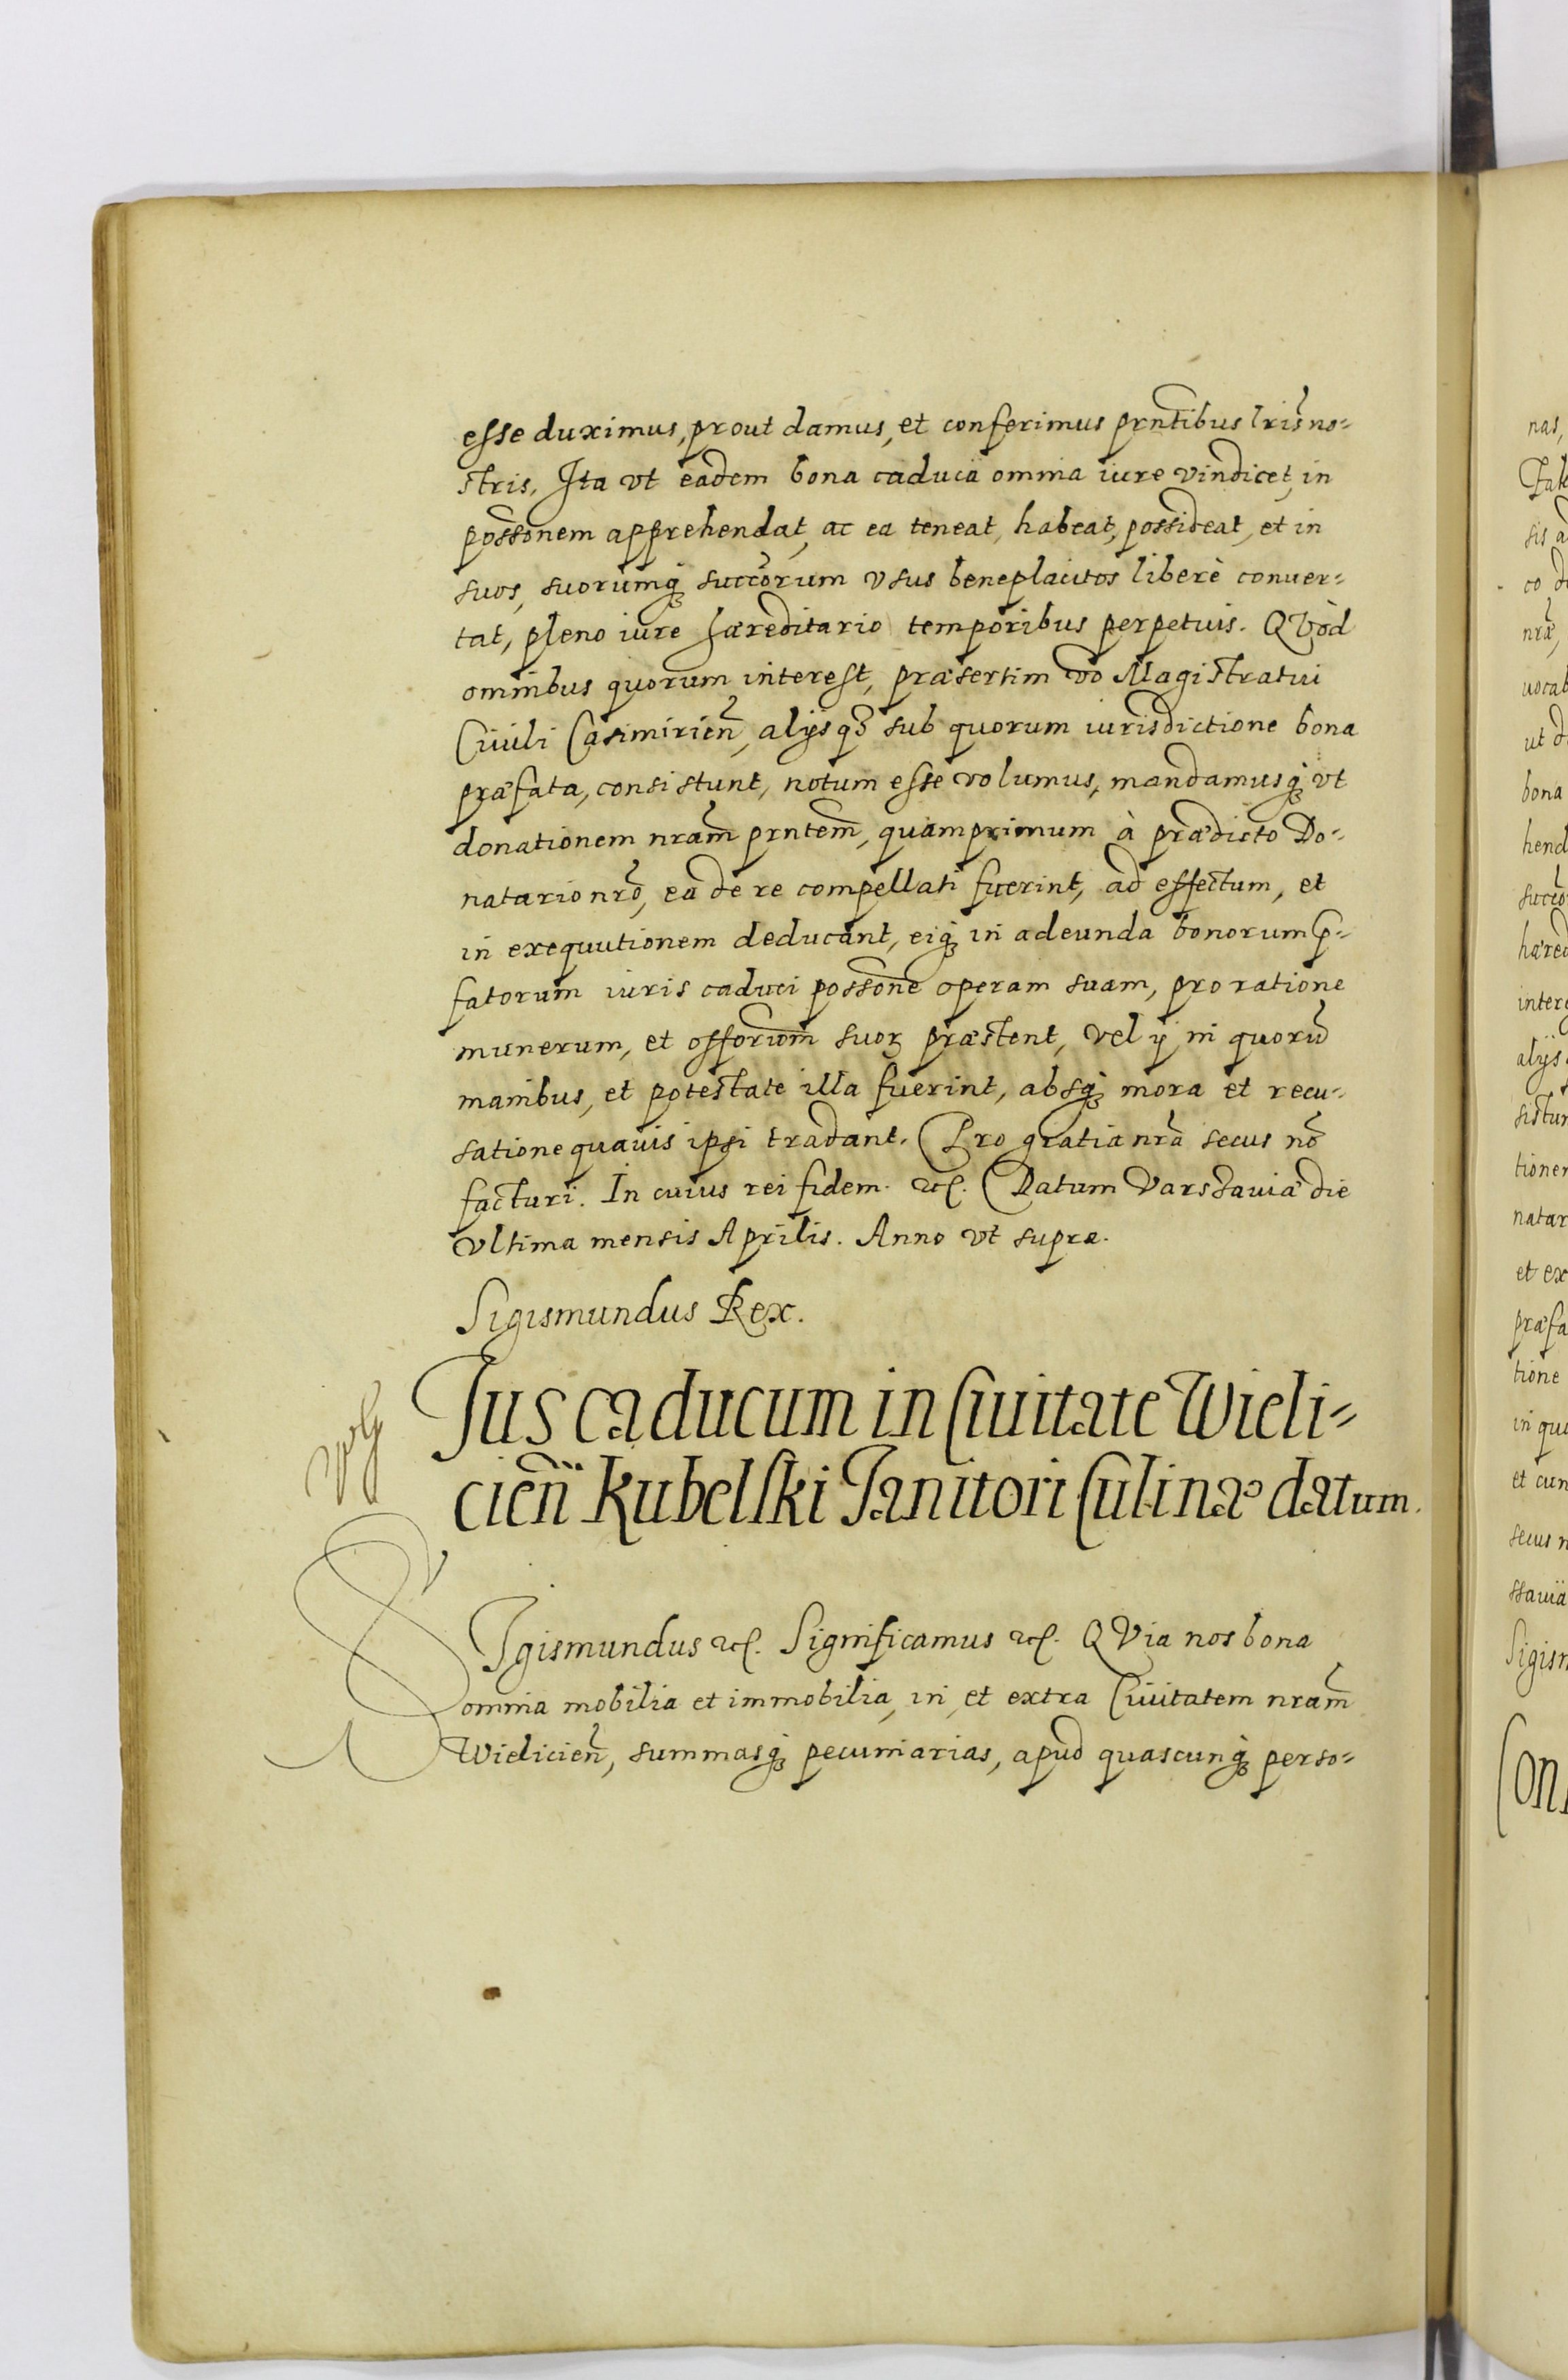 esse duximus, prout damus, et conferimus prntibus lris no=
stris. Ita vt eadem bona caduca omnia iure vindicet, in
possonem apprehendat, ac ea teneat, habeat, possideat, et in
suos, suorumq; succorum vsus beneplacitos liberè conuer=
tat, pleno iure hæreditario temporibus perpetuis. QVòd
omnibus quorum interest, præsertim vo Magistratui
Ciuili Casimirien, alijsq; sub quorum iurisdictione bona
præfata, consistunt, notum esse volumus, mandamusq; vt
donationem nram prntem, quamprimum à prædicto Do=
natario nro, ea de re compellati fuerint, ad effectum, et
in exequutionem deducant, eiq; in adeunda bonorum p=
fatorum iuris caduci possone operam suam, pro ratione
munerum, et offoriom suoꝝ præstent, vel ij in quorū
manibus, et potestate illa fuerint, absq; mora et recu=
satione quauis ipsi tradant. Pro gratia nra secus nō
facturi. In cuius rei fidem. etc. Datum Varssauiæ die
vltima mensis Aprilis. Anno vt supra.
Sigismundus Rex.
Jus caducum in Ciuitate Wieli=
cien Kubelski Janitori Culinæ datum.
SIgismundus etc. Significamus etc. QVia nos bona
omnia mobilia et immobilia, in, et extra Ciuitatem nram
Wielicien, summasq; pecuniarias, apud quascunq; perso=
nas,
sis a
co d
nræ,
uocab
ut d
bona
hend
succo
hæred
interе
alijs
sistun
tionem
natar
et ex
præfa
tione
in quo
et cun
secus n
ssauiæ
Sigism
Con